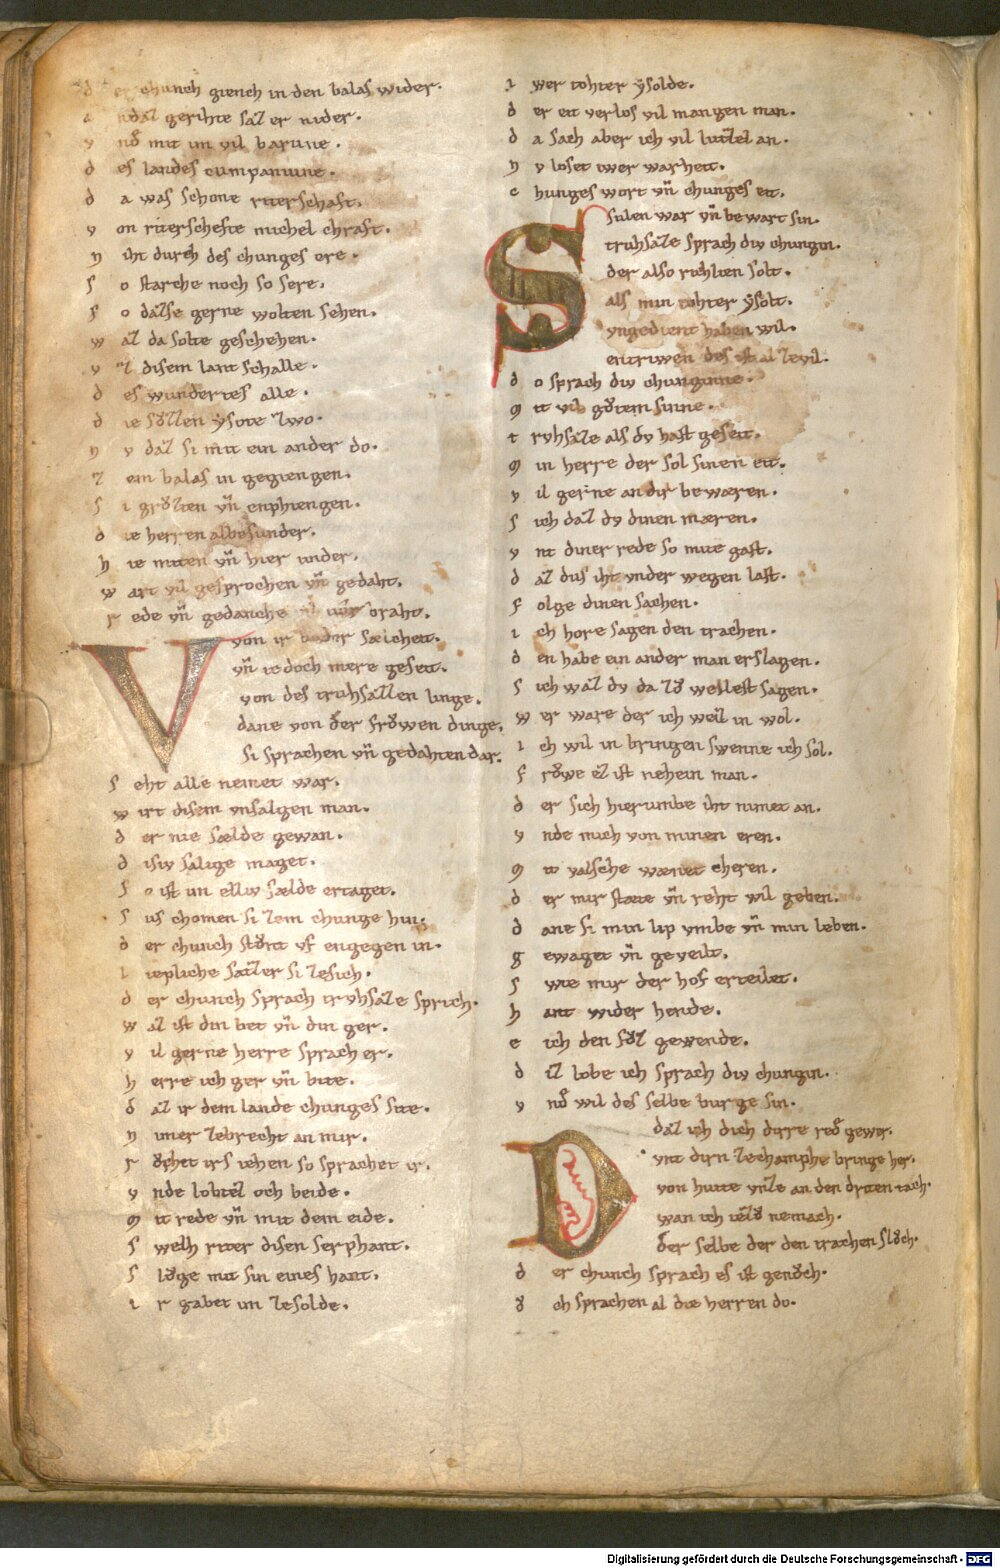 d er chunch giench in den balas wider.
a ndaz gerihte saz er nider.
v nd mit im vil barune.
d es landes cumpaniune.
d a was schone riterschaft.
v on riterschefte michel chraft.
n iht durch des chunges ere.
s o starche noch so sere.
s o dazse gerne wolten sehen.
w az da solte geschehen.
v z disem lant schalle.
d es wundertes alle.
d ie sozzen ysote zwo.
n v daz si mit ein ander do.
z em balas in gegiengen.
s i grozten vn̄ enphiengen.
d ie herren albesunder.
h ie miten vn̄ hier under.
w art vil gesprochen vn̄ gedaht.
r ede vn̄ gedanche braht.
V von ir beider sælicheit.
vn̄ iedoch mere geseit.
von des truhsæzzen linge.
dane von der frowen dinge.
si sprachen vn̄ gedahten dar.
s eht alle nemet war.
w irt disem vnsalgen man.
d er nie sælde gewan.
d isiv salige maget.
s o ist im elliv sælde ertaget.
s us chomen si zem chunge hin.
d er chunch stont vf engegen in.
l iepliche sazter si zesich.
d er chunch sprach trvhsæze sprich.
w az ist din bet vn̄ din ger.
v il gerne herre sprach er.
h erre ich ger vn̄ bite.
d az ir dem lande chunges site.
n imer zebrecht an mir.
r vͦchet irs iehen so sprachet ir.
v nde lobtez och beide.
m it rede vn̄ mit dem eide.
s welh riter disen serphant.
s loge mit sin eines hant.
i r gabet im zesolde.
i wer tohter ysolde.
d er eit verlos vil mangen man.
d a sach aber ich vil lutzel an.
n v loset iwer warheit.
c hunges wort vn̄ chunges eit.
S sulen war vn̄ bewart sin.
truhsæze sprach div chungin.
der also richlien solt.
als min tohter ysolt.
vngedient haben wil.
entriwen des ist al zevil.
d o sprach div chunginne.
m it vil gotem sinne.
t rvhsæze als dv hast geseit.
m in herre der sol sinen eit.
v il gerne an dir bewæren.
s ich daz dv dinen mæren.
v nt diner rede so mite gast.
d az dus iht vnder wegen last.
f olge dinen sachen.
i ch hore sagen den trachen.
d en habe ein ander man erslagen.
s ich waz dv da zo wellest sagen.
w er ware der ich weiz in wol.
i ch wil in bringen swenne ich sol.
f rowe ez ist nehein man.
d er sich hierumbe iht nimet an.
v nde mich von minen eren.
m it valsche wænet cheren.
d er mir state vn̄ reht wil geben.
d ane si min lip vmbe vn̄ min leben.
g ewaget vn̄ geveilt.
s wie mir der hof erteilet.
h ant wider hende.
e ich den foz gewende.
d iz lobe ich sprach div chungin.
v nd wil des selbe burge sin.
D daz ich dich dirre rede gewer.
vnt dirn zechamphe bringe her.
von hute vnze an den driten tach.
wan ich iezo nemach.
der selbe der den trachen sloch.
d er chunch sprach es ist genoch.
o ch sprachen al die herren do.
Digitalisierung gefördert durch die Deutsche Forschungsgemeinschaft - DFG